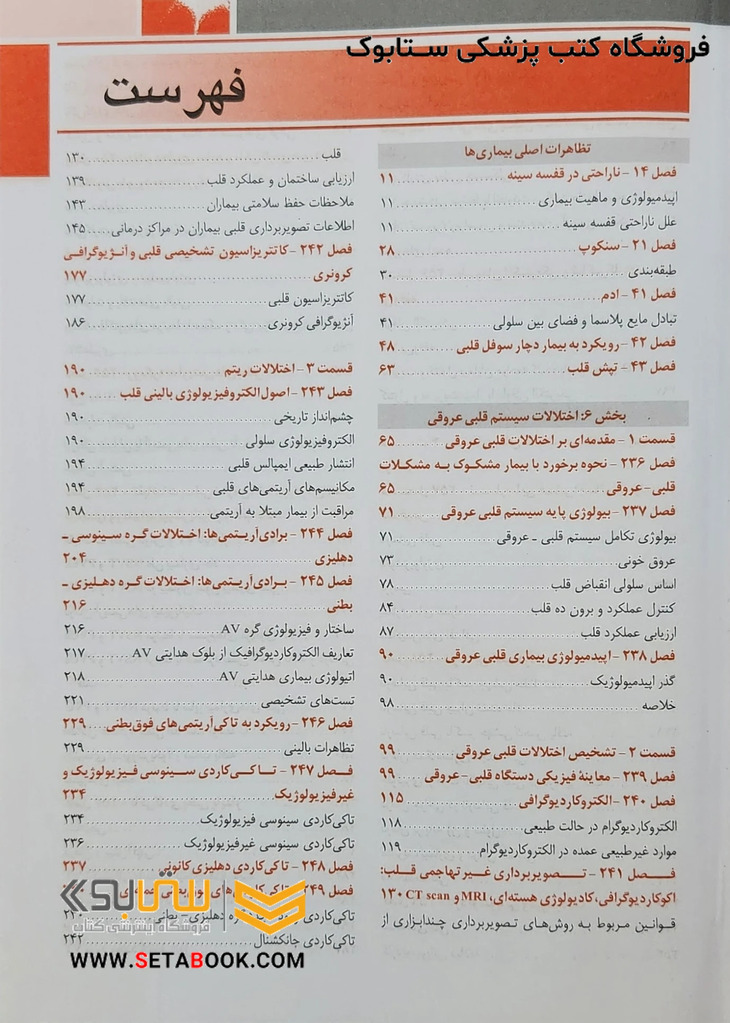 فروشگاه کتب پزشکی ستابوک
فهرست
تظاهرات اصلی بیماری‌ها
فصل ۱۴ - ناراحتی در قفسه سینه ۱۱
اپیدمیولوژی و ماهیت بیماری ۱۱
علل ناراحتی قفسه سینه ۱۱
فصل ۲۱ - سنکوپ ۲۸
طبقه‌بندی ۳۰
فصل ۴۱ - ادم ۴۱
تبادل مایع پلاسما و فضای بین سلولی ۴۱
فصل ۴۲ - رویکرد به بیمار دچار سوفل قلبی ۴۸
فصل ۴۳ - تپش قلب ۶۳
بخش ۶: اختلالات سیستم قلبی عروقی
قسمت ۱ - مقدمه‌ای بر اختلالات قلبی عروقی ۶۵
فصل ۲۳۶ - نحوه برخورد با بیمار مشکوک به مشکلات
قلبی - عروقی ۶۵
فصل ۲۳۷ - بیولوژی پایه سیستم قلبی عروقی ۷۱
بیولوژی تکامل سیستم قلبی ـ عروقی ۷۱
عروق خونی ۷۳
اساس سلولی انقباض قلب ۷۸
کنترل عملکرد و برون ده قلب ۸۴
ارزیابی عملکرد قلب ۸۷
فصل ۲۳۸ - اپیدمیولوژی بیماری قلبی عروقی ۹۰
گذر اپیدمیولوژیک ۹۰
خلاصه ۹۸
قسمت ۲ - تشخیص اختلالات قلبی عروقی ۹۹
فصل ۲۳۹ - معاینهٔ فیزیکی دستگاه قلبی - عروقی ۹۹
فصل ۲۴۰ - الکتروکاردیوگرافی ۱۱۵
الکتروکاردیوگرام در حالت طبیعی ۱۱۸
موارد غیرطبیعی عمده در الکتروکاردیوگرام ۱۱۹
فصل ۲۴۱ - تصویربرداری غیر تهاجمی قلب:
اکوکاردیوگرافی، کادیولوژی هسته‌ای، MRI و CT scan ۱۳۰
قوانین مربوط به روش‌های تصویربرداری چندابزاری از
قلب ۱۳۰
ارزیابی ساختمان و عملکرد قلب ۱۳۹
ملاحظات حفظ سلامتی بیماران ۱۴۳
اطلاعات تصویربرداری قلبی بیماران در مراکز درمانی ۱۴۵
فصل ۲۴۲ - کاتتریزاسیون تشخیصی قلبی و آنژیوگرافی
کرونری ۱۷۷
کاتتریزاسیون قلبی ۱۷۷
آنژیوگرافی کرونری ۱۸۶
قسمت ۳ - اختلالات ریتم ۱۹۰
فصل ۲۴۳ - اصول الکتروفیزیولوژی بالینی قلب ۱۹۰
چشم‌انداز تاریخی ۱۹۰
الکتروفیزیولوژی سلولی ۱۹۰
انتشار طبیعی ایمپالس قلبی ۱۹۴
مکانیسم‌های آریتمی‌های قلبی ۱۹۴
مراقبت از بیمار مبتلا به آریتمی ۱۹۸
فصل ۲۴۴ - برادی‌آریتمی‌ها: اختلالات گره سینوسی ـ
دهلیزی ۲۰۴
فصل ۲۴۵ - برادی‌آریتمی‌ها: اختلالات گره دهلیزی ـ
بطنی ۲۱۶
ساختار و فیزیولوژی گره AV ۲۱۶
تعاریف الکتروکاردیوگرافیک از بلوک هدایتی AV ۲۱۷
اتیولوژی بیماری هدایتی AV ۲۱۸
تست‌های تشخیصی ۲۲۱
فصل ۲۴۶ - رویکرد به تاکی‌آریتمی‌های فوق‌بطنی ۲۲۹
تظاهرات بالینی ۲۲۹
فصل ۲۴۷ - تاکی‌کاردی سینوسی فیزیولوژیک و
غیرفیزیولوژیک ۲۳۴
تاکی‌کاردی سینوسی فیزیولوژیک ۲۳۴
تاکی‌کاردی سینوسی غیرفیزیولوژیک ۲۳۶
فصل ۲۴۸ - تاکی‌کاردی دهلیزی کانونی ۲۳۷
فصل ۲۴۹ - تاکی
تاکی‌کاردی گره دهلیزی - بطنی ۲۴۰
تاکی‌کاردی جانکشنال ۲۴۲
ستابوک
فروشگاه اینترنتی کتاب
WWW.SETABOOK.COM